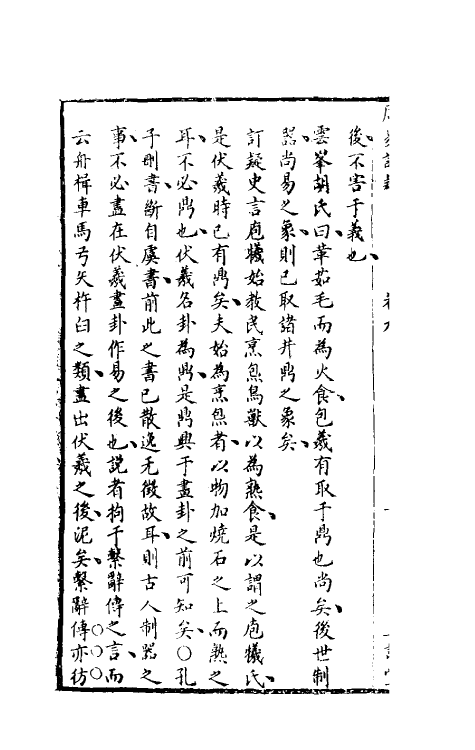 後不害于義也
雲峯胡氏曰葷茹毛而為火食包羲有取于鼎也尚矣後世制
器尚易之象則已取諸井鼎之象矣
訂疑史言庖犧始教民烹炰鳥獸以為熟食是以謂之庖犧氏
是伏羲時已有鼎矣夫始為烹炰者以物加燒石之上而熟之
耳不必鼎也伏羲名卦為鼎是鼎興于畫卦之前可知矣○孔
子刪書斷自虞書前此之書已散逸无徵故耳則古人制器之
事不必盡在伏羲畫卦作易之後也說者拘于繫辭傳之言而
云舟楫車馬弓矢杵臼之類盡出伏羲之後泥矣繫辭傳亦彷